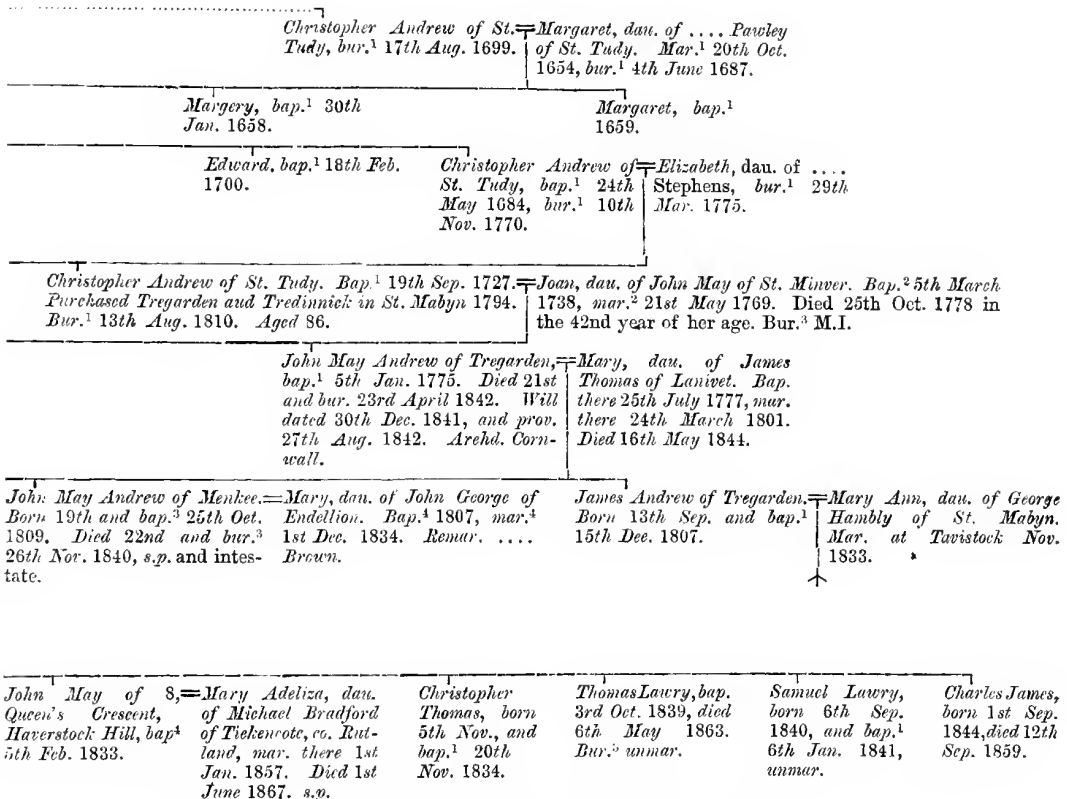 Christopher Andrew of St. Tudy, bur.¹ 17th Aug. 1699.
Margaret, dau. of .... Pawley of St. Tudy. Mar.¹ 20th Oct. 1654, bur.¹ 4th June 1687.
Margery, bap.¹ 30th
Jan. 1658.
Margaret, bap.¹
1659.
Edward, bap.¹ 18th Feb.
1700.
Christopher Andrew of
St. Tudy, bap.¹ 24th
May 1684, bur.¹ 10th
Nov. 1770.
Elizabeth, dau. of ....
Stephens, bur.¹ 29th
Mar. 1775.
Christopher Andrew of St. Tudy. Bap.¹ 19th Sep. 1727.
Purchased Tregarden and Tredinnick in St. Mabyn 1794.
Bur.¹ 13th Aug. 1810. Aged 86.
Joan, dau. of John May of St. Minver. Bap.² 5th March
1738, mar.² 21st May 1769. Died 25th Oct. 1778 in
the 42nd year of her age. Bur.³ M.I.
John May Andrew of Tregarden,
bap.¹ 5th Jan. 1775. Died 21st
and bur. 23rd April 1842. Will
dated 30th Dec. 1841, and prov.
27th Aug. 1842. Archd. Corn-
wall.
Mary, dau. of James
Thomas of Lanivet. Bap.
there 25th July 1777, mar.
there 24th March 1801.
Died 16th May 1844.
John May Andrew of Menkee.
Born 19th and bap.³ 25th Oct.
1809. Died 22nd and bur.³
26th Nov. 1840, s.p. and intes-
tate.
Mary, dau. of John George of
Endellion. Bap.⁴ 1807, mar.⁴
1st Dec. 1834. Remar. ....
Brown.
James Andrew of Tregarden.
Born 13th Sep. and bap.¹
15th Dec. 1807.
Mary Ann, dau. of George
Hambly of St. Mabyn.
Mar. at Tavistock Nov.
1833.
John May of 8,
Queen's Crescent,
Haverstock Hill, bap⁴
5th Feb. 1833.
Mary Adeliza, dau.
of Michael Bradford
of Tickencote, co. Rut-
land, mar. there 1st
Jan. 1857. Died 1st
June 1867. s.p.
Christopher
Thomas, born
5th Nov., and
bap.¹ 20th
Nov. 1834.
Thomas Lawry, bap.
3rd Oct. 1839, died
6th May 1863.
Bur.³ unmar.
Samuel Lawry,
born 6th Sep.
1840, and bap.¹
6th Jan. 1841,
unmar.
Charles James,
born 1st Sep.
1844, died 12th
Sep. 1859.